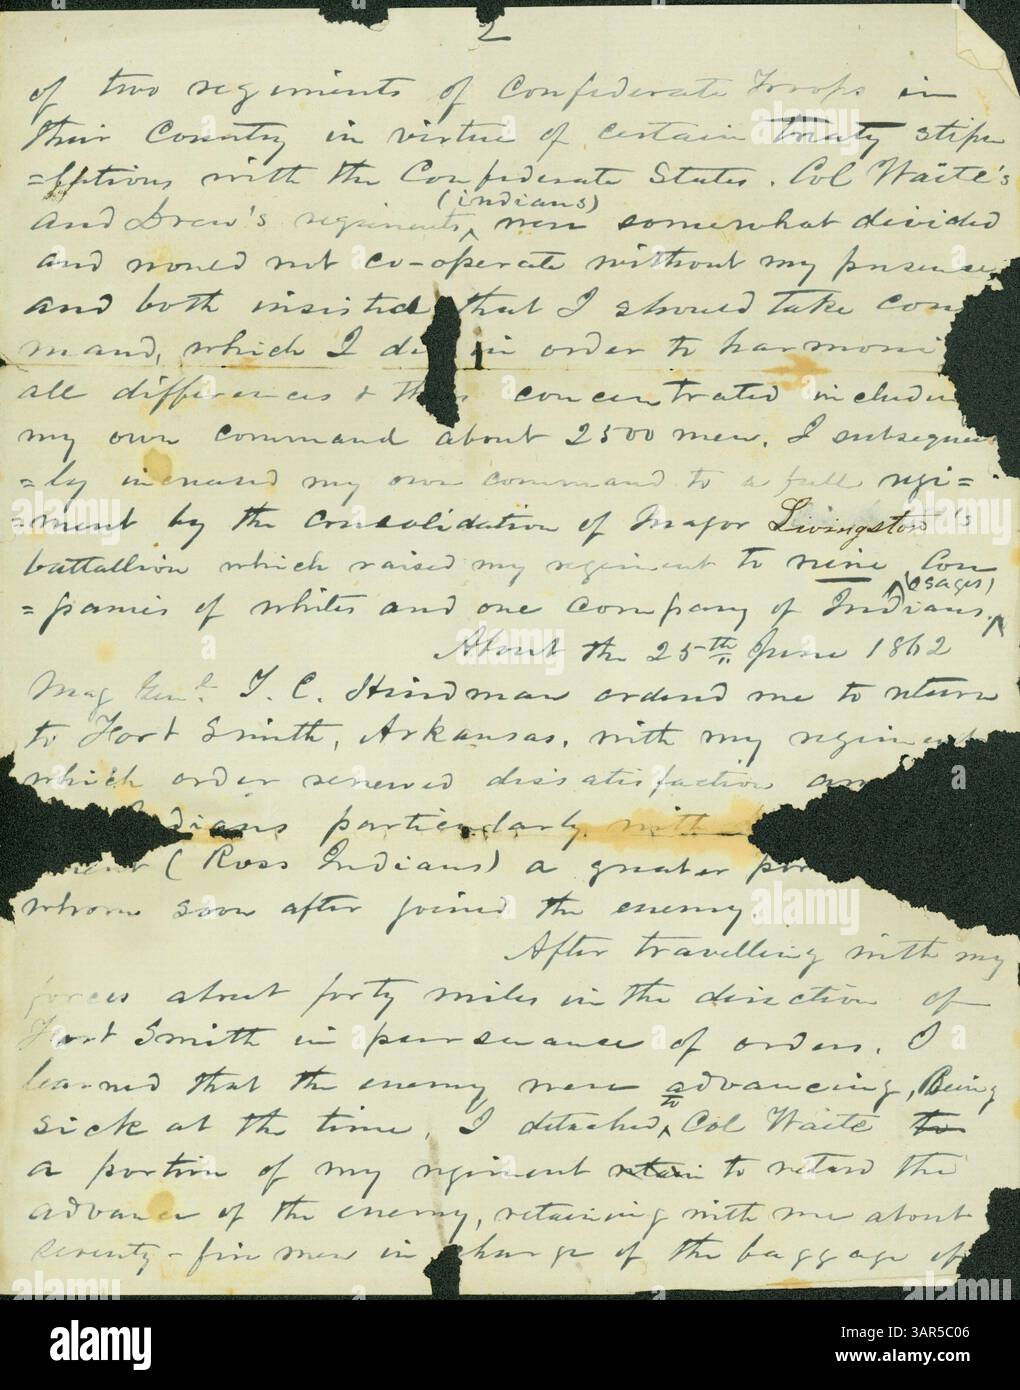 2
of two regiments of Confederate Troops in
their Country in virtue of certain treaty stipu
=lations with the Confederate States. Col Waite's
(indians)
and Drew's regiments, were somewhat divided
and would not co-operate without my presence
and both insisted that I should take com
mand, which I di in order to harmoni
all differences & th s concentrated includin
my own command about 2500 men. I subsequen
=ly increased my own command to a full regi=
=ment by the consolidation of Major Livingston's
battallion which raised my regiment to nine Com
(osages)
=panies of whites and one company of Indians.
About the 25th June 1862
Maj Genl. T. C. Hindman ordered me to return
to Fort Smith, Arkansas, with my regiment
which order renewed dissatisfaction am
dians particularly with
ment (Ross Indians) a greater por
whom soon after joined the enemy.
After travelling with my
forces about forty miles in the direction of
Fort Smith in pursuance of orders, I
learned that the enemy were advancing, Being
to
sick at the time, I detached Col Waite to
a portion of my regiment retain to retard the
advance of the enemy, retaining with me about
seventy-five men in charge of the baggage of
alamy
Image ID: 3AR5C06
www.alamy.com